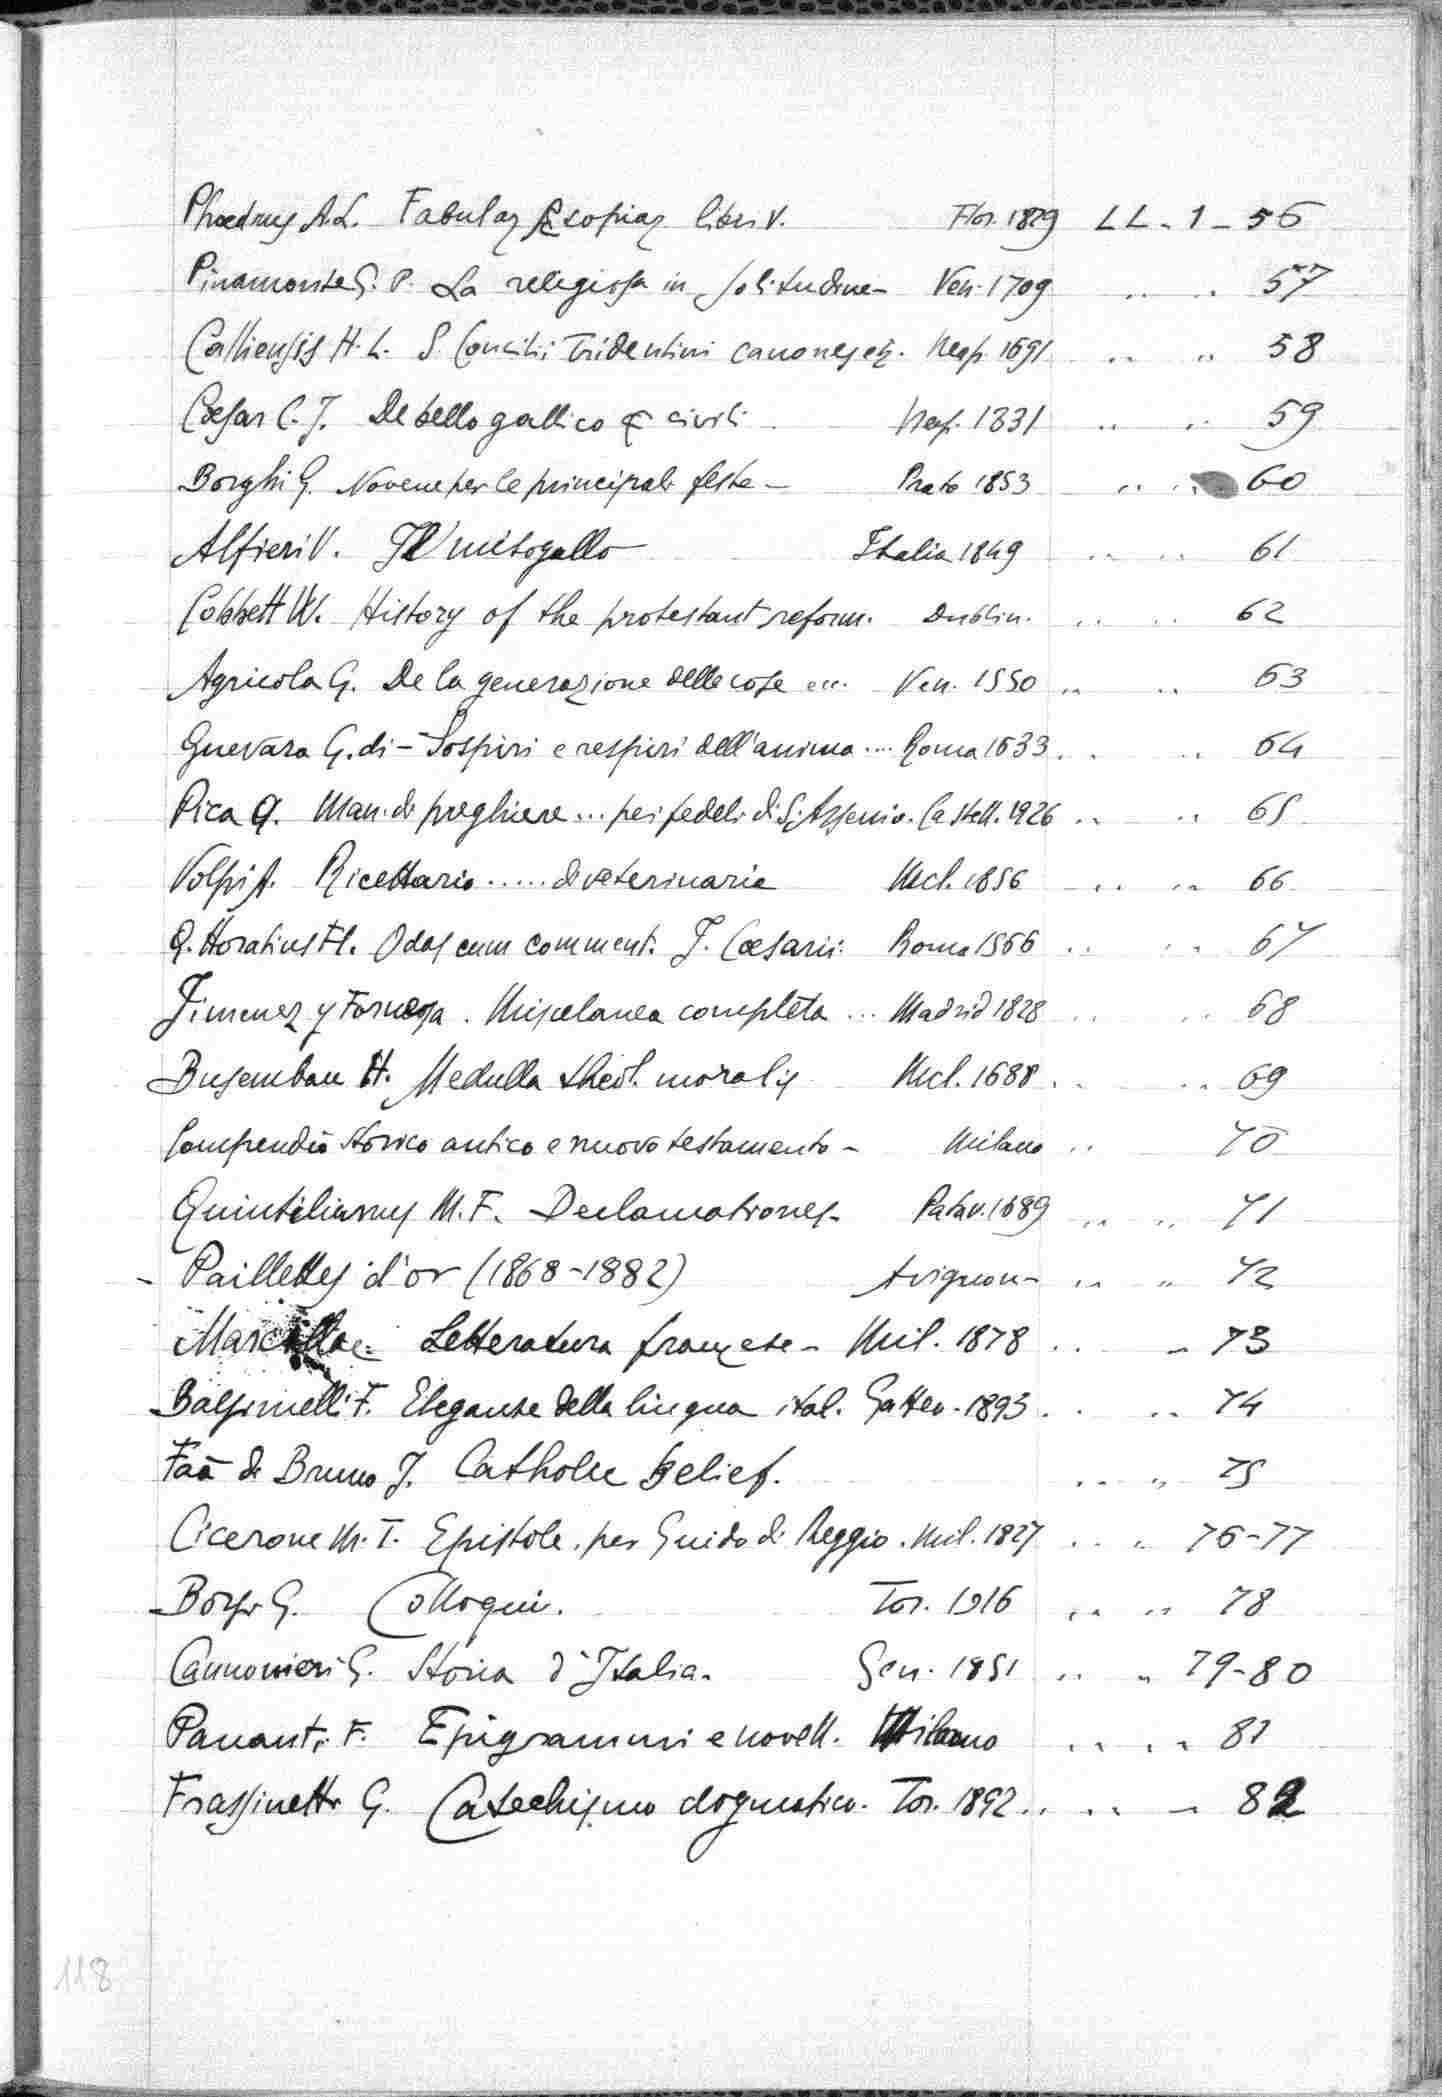 Phædrus A. L. Fabulas Æsopias libri V. Flor. 1829 LL - 1 - 56
Pinamonte G. P. La religiosa in solitudine - Ven. 1709 " " 57
Calliensis H. L. S. Concilii Tridentini canones etz. Neap. 1691 " " 58
Cæsar C. J. De bello gallico & civili Neap. 1831 " " 59
Borghi G. Novene per le principali feste - Prato 1853 " " 60
Alfieri V. Il misogallo Italia 1849 " " 61
Cobbett W. History of the protestant reform. Dublin. " " 62
Agricola G. De la generazione delle cose ecc. Ven. 1550 " " 63
Guevara G. di - Sospiri e respiri dell'anima .... Roma 1633 " " 64
Pica G. Man. di preghiere ... pei fedeli di S. Assenio. Castell. 1926 " " 65
Volpi A. Ricettario ..... di veterinaria Mil. 1856 " " 66
Q. Horatius Fl. Odas cum comment. J. Cæsarii. Roma 1566 " " 67
Jimenez y Fornesa. Miscelanea completa ... Madrid 1828 " " 68
Busembau H. Medulla theol. moralis Mil. 1688 " " 69
Compendio storico antico e nuovo testamento - Milano " 70
Quintilianus M. F. Declamationes - Patav. 1689 " " 71
- Paillettes d'or (1868-1882) Avignon - " " 72
Marcillac. Letteratura francese - Mil. 1878 " " 73
Balsimelli F. Eleganze della lingua ital. Gatteo - 1893 " " 74
Faà di Bruno J. Catholic belief. " " 75
Cicerone M. T. Epistole. per Guido di Reggio. Mil. 1827 " " 76-77
Borsi G. Colloqui. Tor. 1916 " " 78
Cannonieri G. Storia d'Italia. Gen. 1851 " " 79-80
Pananti F. Epigrammi e novell. Milano " " 81
Frassinetti G. Catechismo dogmatico. Tor. 1892 " " 82
118